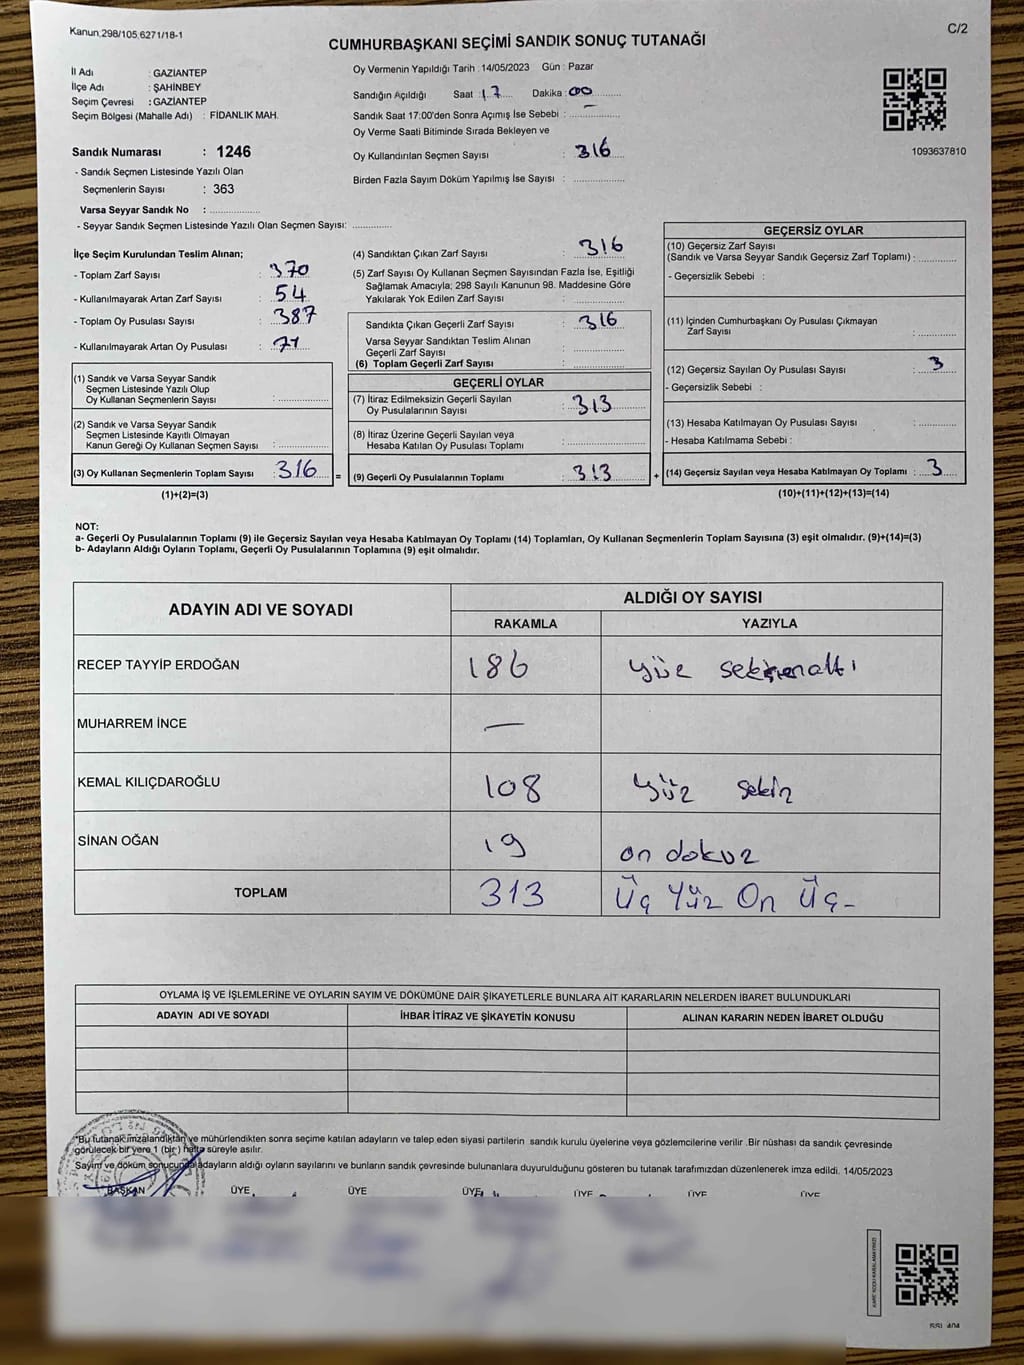 Kanun:298/105,6271/18-1
C/2
CUMHURBAŞKANI SEÇİMİ SANDIK SONUÇ TUTANAĞI
İl Adı : GAZİANTEP
İlçe Adı : ŞAHİNBEY
Seçim Çevresi : GAZİANTEP
Seçim Bölgesi (Mahalle Adı) : FİDANLIK MAH.
Sandık Numarası : 1246
- Sandık Seçmen Listesinde Yazılı Olan
Seçmenlerin Sayısı : 363
Varsa Seyyar Sandık No :
- Seyyar Sandık Seçmen Listesinde Yazılı Olan Seçmen Sayısı:
Oy Vermenin Yapıldığı Tarih :14/05/2023 Gün : Pazar
Sandığın Açıldığı Saat :17 Dakika :00
Sandık Saat 17:00'den Sonra Açımış İse Sebebi : —
Oy Verme Saati Bitiminde Sırada Bekleyen ve
Oy Kullandırılan Seçmen Sayısı : 316
Birden Fazla Sayım Döküm Yapılmış İse Sayısı :
1093637810
İlçe Seçim Kurulundan Teslim Alınan;
- Toplam Zarf Sayısı : 370
- Kullanılmayarak Artan Zarf Sayısı : 54
- Toplam Oy Pusulası Sayısı : 387
- Kullanılmayarak Artan Oy Pusulası : 71
(1) Sandık ve Varsa Seyyar Sandık
Seçmen Listesinde Yazılı Olup
Oy Kullanan Seçmenlerin Sayısı :
(2) Sandık ve Varsa Seyyar Sandık
Seçmen Listesinde Kayıtlı Olmayan
Kanun Gereği Oy Kullanan Seçmen Sayısı :
(3) Oy Kullanan Seçmenlerin Toplam Sayısı : 316
(1)+(2)=(3)
=
(4) Sandıktan Çıkan Zarf Sayısı : 316
(5) Zarf Sayısı Oy Kullanan Seçmen Sayısından Fazla İse, Eşitliği
Sağlamak Amacıyla; 298 Sayılı Kanunun 98. Maddesine Göre
Yakılarak Yok Edilen Zarf Sayısı :
Sandıkta Çıkan Geçerli Zarf Sayısı : 316
Varsa Seyyar Sandıktan Teslim Alınan
Geçerli Zarf Sayısı :
(6) Toplam Geçerli Zarf Sayısı :
GEÇERLİ OYLAR
(7) İtiraz Edilmeksizin Geçerli Sayılan
Oy Pusulalarının Sayısı : 313
(8) İtiraz Üzerine Geçerli Sayılan veya
Hesaba Katılan Oy Pusulası Toplamı :
(9) Geçerli Oy Pusulalarının Toplamı : 313
+
GEÇERSİZ OYLAR
(10) Geçersiz Zarf Sayısı
(Sandık ve Varsa Seyyar Sandık Geçersiz Zarf Toplamı) :
- Geçersizlik Sebebi :
(11) İçinden Cumhurbaşkanı Oy Pusulası Çıkmayan
Zarf Sayısı :
(12) Geçersiz Sayılan Oy Pusulası Sayısı : 3
- Geçersizlik Sebebi :
(13) Hesaba Katılmayan Oy Pusulası Sayısı :
- Hesaba Katılmama Sebebi :
(14) Geçersiz Sayılan veya Hesaba Katılmayan Oy Toplamı : 3
(10)+(11)+(12)+(13)=(14)
NOT:
a- Geçerli Oy Pusulalarının Toplamı (9) ile Geçersiz Sayılan veya Hesaba Katılmayan Oy Toplamı (14) Toplamları, Oy Kullanan Seçmenlerin Toplam Sayısına (3) eşit olmalıdır. (9)+(14)=(3)
b- Adayların Aldığı Oyların Toplamı, Geçerli Oy Pusulalarının Toplamına (9) eşit olmalıdır.
ADAYIN ADI VE SOYADI ALDIĞI OY SAYISI
RAKAMLA YAZIYLA
RECEP TAYYİP ERDOĞAN 186 yüz seksenaltı
MUHARREM İNCE —
KEMAL KILIÇDAROĞLU 108 yüz sekiz
SİNAN OĞAN 19 on dokuz
TOPLAM 313 Üç Yüz On Üç-
OYLAMA İŞ VE İŞLEMLERİNE VE OYLARIN SAYIM VE DÖKÜMÜNE DAİR ŞİKAYETLERLE BUNLARA AİT KARARLARIN NELERDEN İBARET BULUNDUKLARI
ADAYIN ADI VE SOYADI İHBAR İTİRAZ VE ŞİKAYETİN KONUSU ALINAN KARARIN NEDEN İBARET OLDUĞU
"Bu tutanak imzalandıktan ve mühürlendikten sonra seçime katılan adayların ve talep eden siyasi partilerin sandık kurulu üyelerine veya gözlemcilerine verilir .Bir nüshası da sandık çevresinde
görülecek bir yere 1 (bir) hafta süreyle asılır.
Sayım ve döküm sonucunda adayların aldığı oyların sayılarını ve bunların sandık çevresinde bulunanlara duyurulduğunu gösteren bu tutanak tarafımızdan düzenlenerek imza edildi. 14/05/2023
BAŞKAN ÜYE ÜYE ÜYE ÜYE ÜYE ÜYE